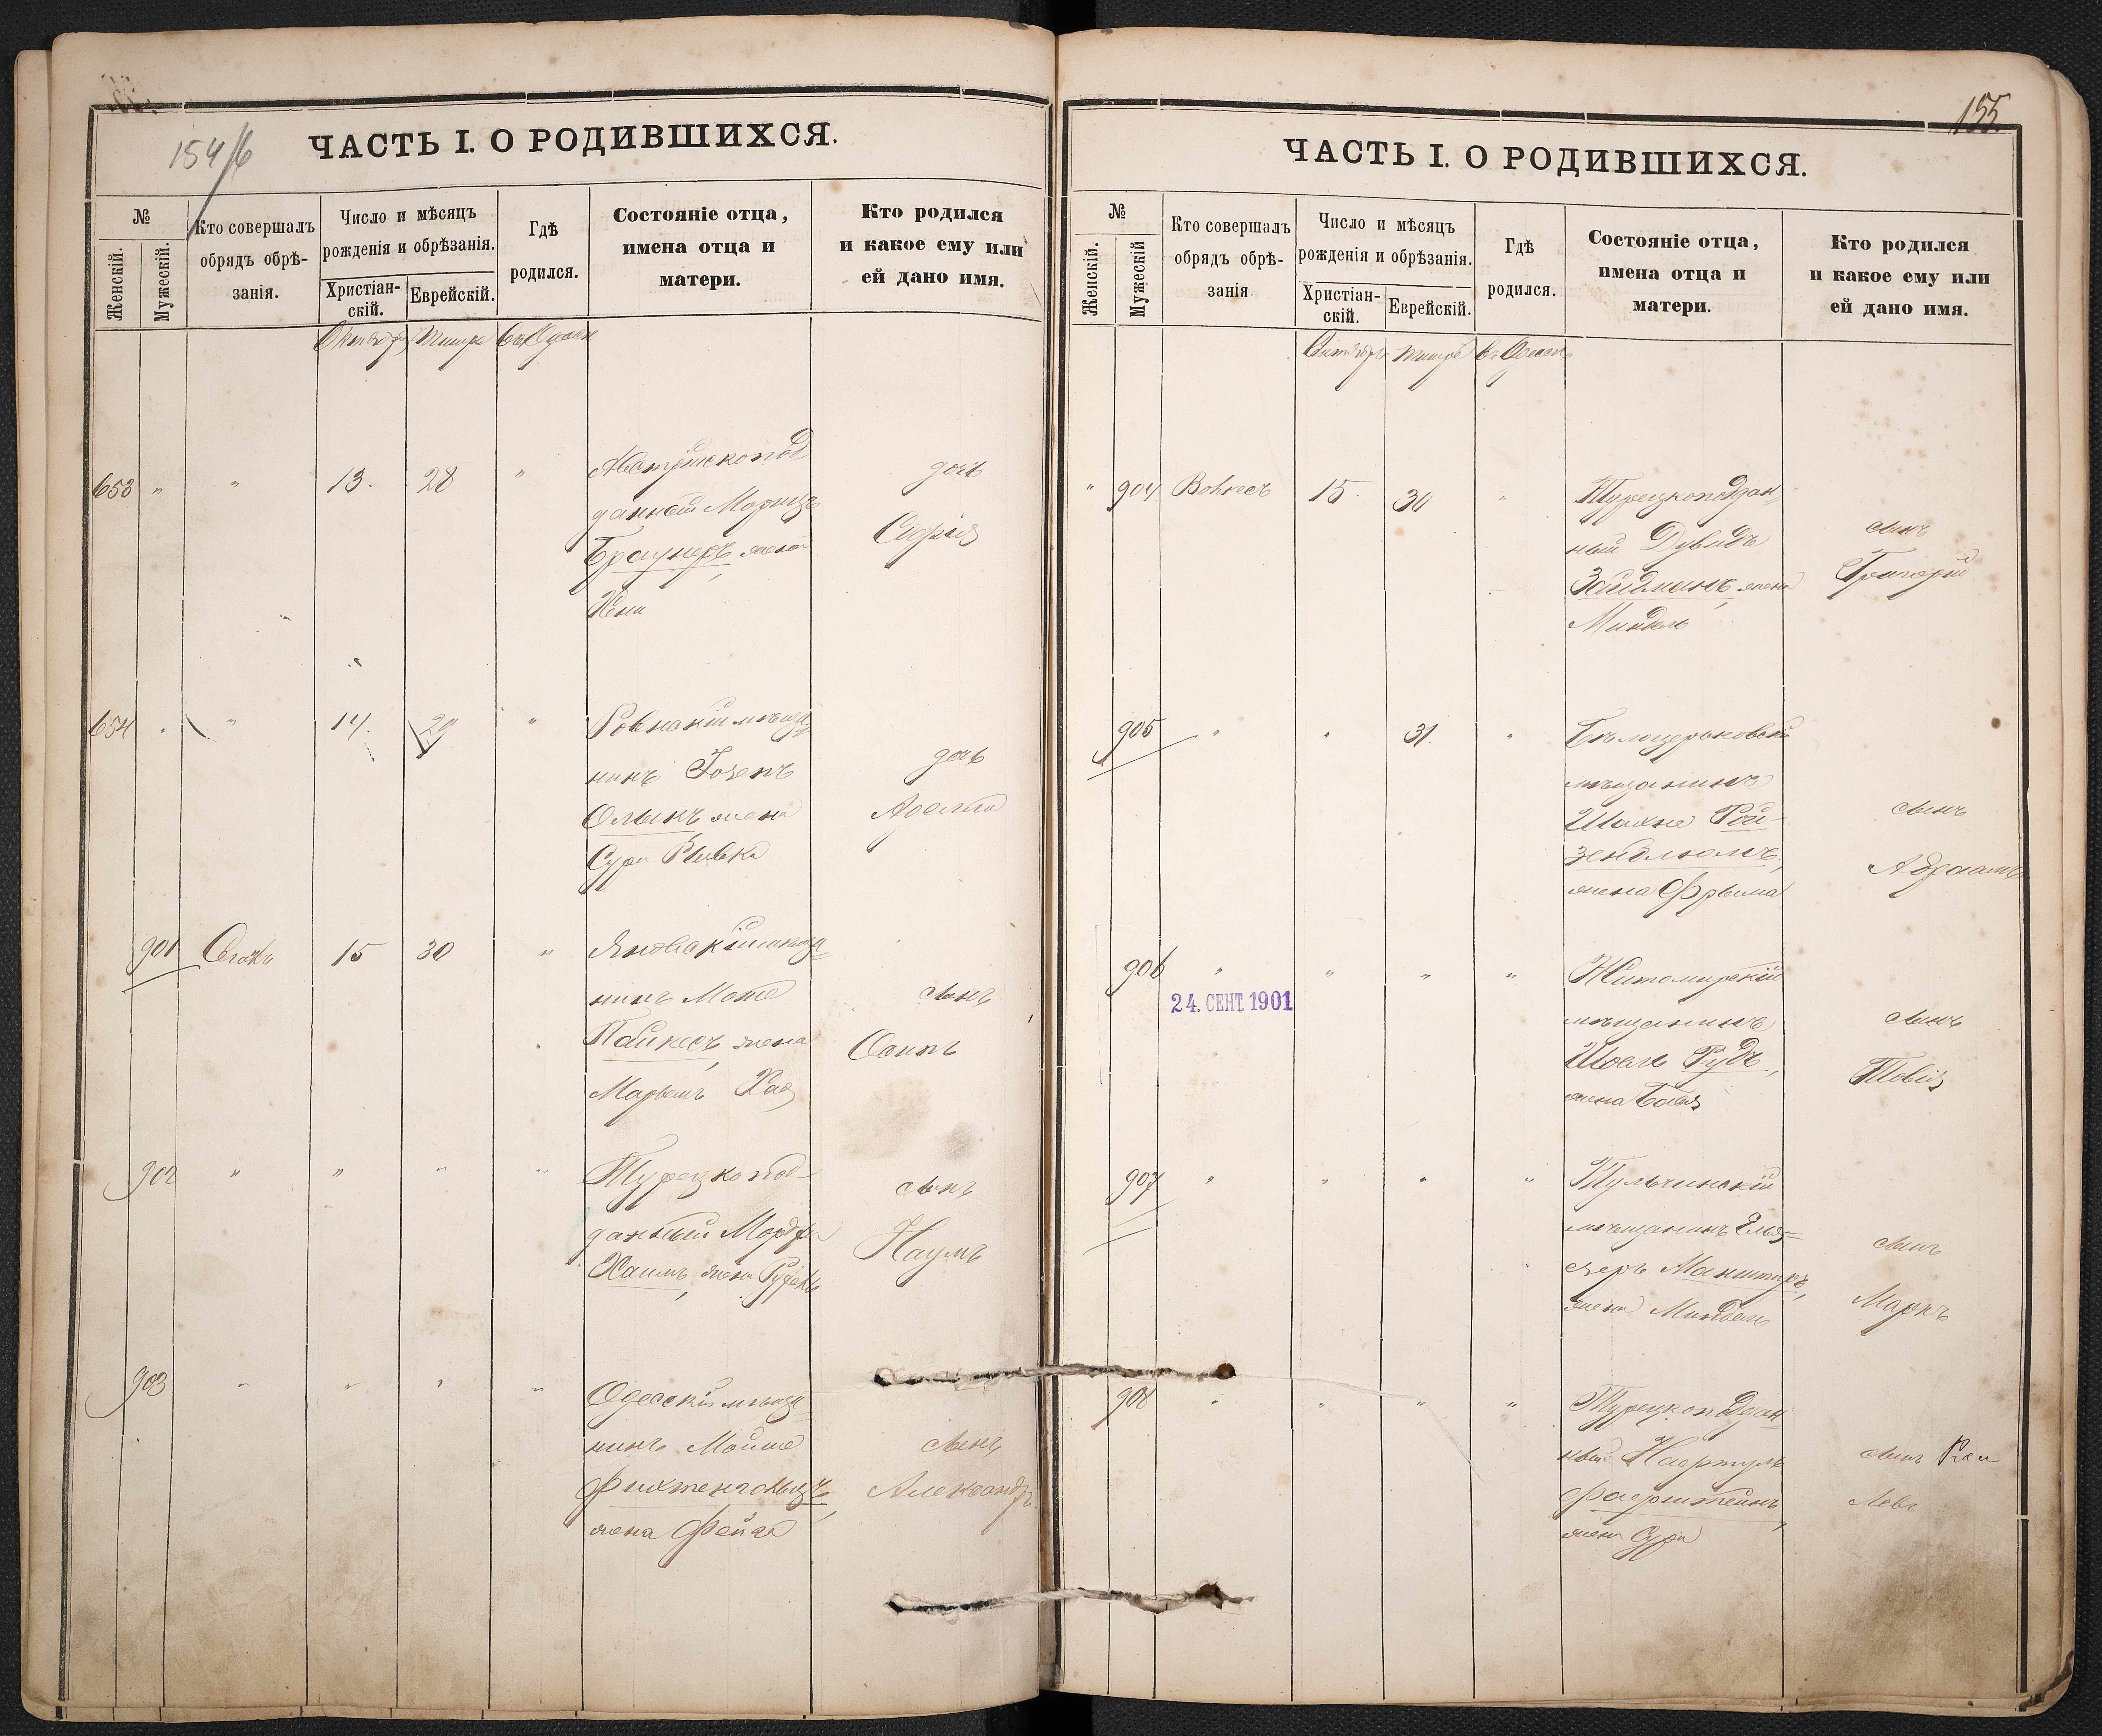 154/б
ЧАСТЬ I. О РОДИВШИХСЯ.
№
Женскій.
Мужескій.
Кто совершалъ
обрядъ обрѣ-
занія.
Число и мѣсяцъ
рожденія и обрѣзанія.
Христіан-
скій.
Еврейскій.
Гдѣ
родился.
Состояніе отца,
имена отца и
матери.
Кто родился
и какое ему или
ей дано имя.
Октябрь Тишре въ Одессѣ
653 " " 13. 28 "
Австрійскопод
данный Морицъ
Браунеръ, жена
Хени
дочь
Софія
654 " 14. 29 "
Ровнскій мѣща
нинъ Іозепъ
Олыкъ, жена
Сура Рывка
дочь
Аделла
901 15 30 "
Яновскій мѣща
нинъ Мотё
Пайкесъ, жена
Марьемъ Хая
сынъ
Осипъ
902 " " " "
Турецкопод-
данный Мордко
Хаимъ, жена
сынъ
Наумъ
903 " " " "
Одесскій мѣща
нинъ Мойше
Фихтенгольцъ,
жена Фейга
сынъ
Александръ
155.
ЧАСТЬ I. О РОДИВШИХСЯ.
№
Женскій.
Мужескій
Кто совершалъ
обрядъ обрѣ-
занія
Число и мѣсяцъ
рожденія и обрѣзанія.
Христіан-
скій.
Еврейскій.
Гдѣ
родился.
Состояніе отца,
имена отца и
матери.
Кто родился
и какое ему или
ей дано имя.
Октябрь Тишре въ Одессѣ
" 904 15. 30 "
Турецкоподдан
ный Дувидъ
Зайдманъ, жена
Миндель
сынъ
Григорій
905 " " 31. "
Бѣлоцерковскій
мѣщанинъ
Шахне Рой-
зенблюмъ,
жена Фрыма
сынъ
Абраамъ
906 " " " "
24. СЕНТ 1901
Житомирскій
мѣщанинъ
Шоель Рудъ,
жена Бася
сынъ
Товія
907 " " " "
Тульчинскій
мѣщанинъ Елья-
зеръ
жена Миндель
сынъ
Маркъ
908 " " " "
Турецкоподдан
ный Нафтуль
Фаерштейнъ,
жена Сура
сынъ
Левъ